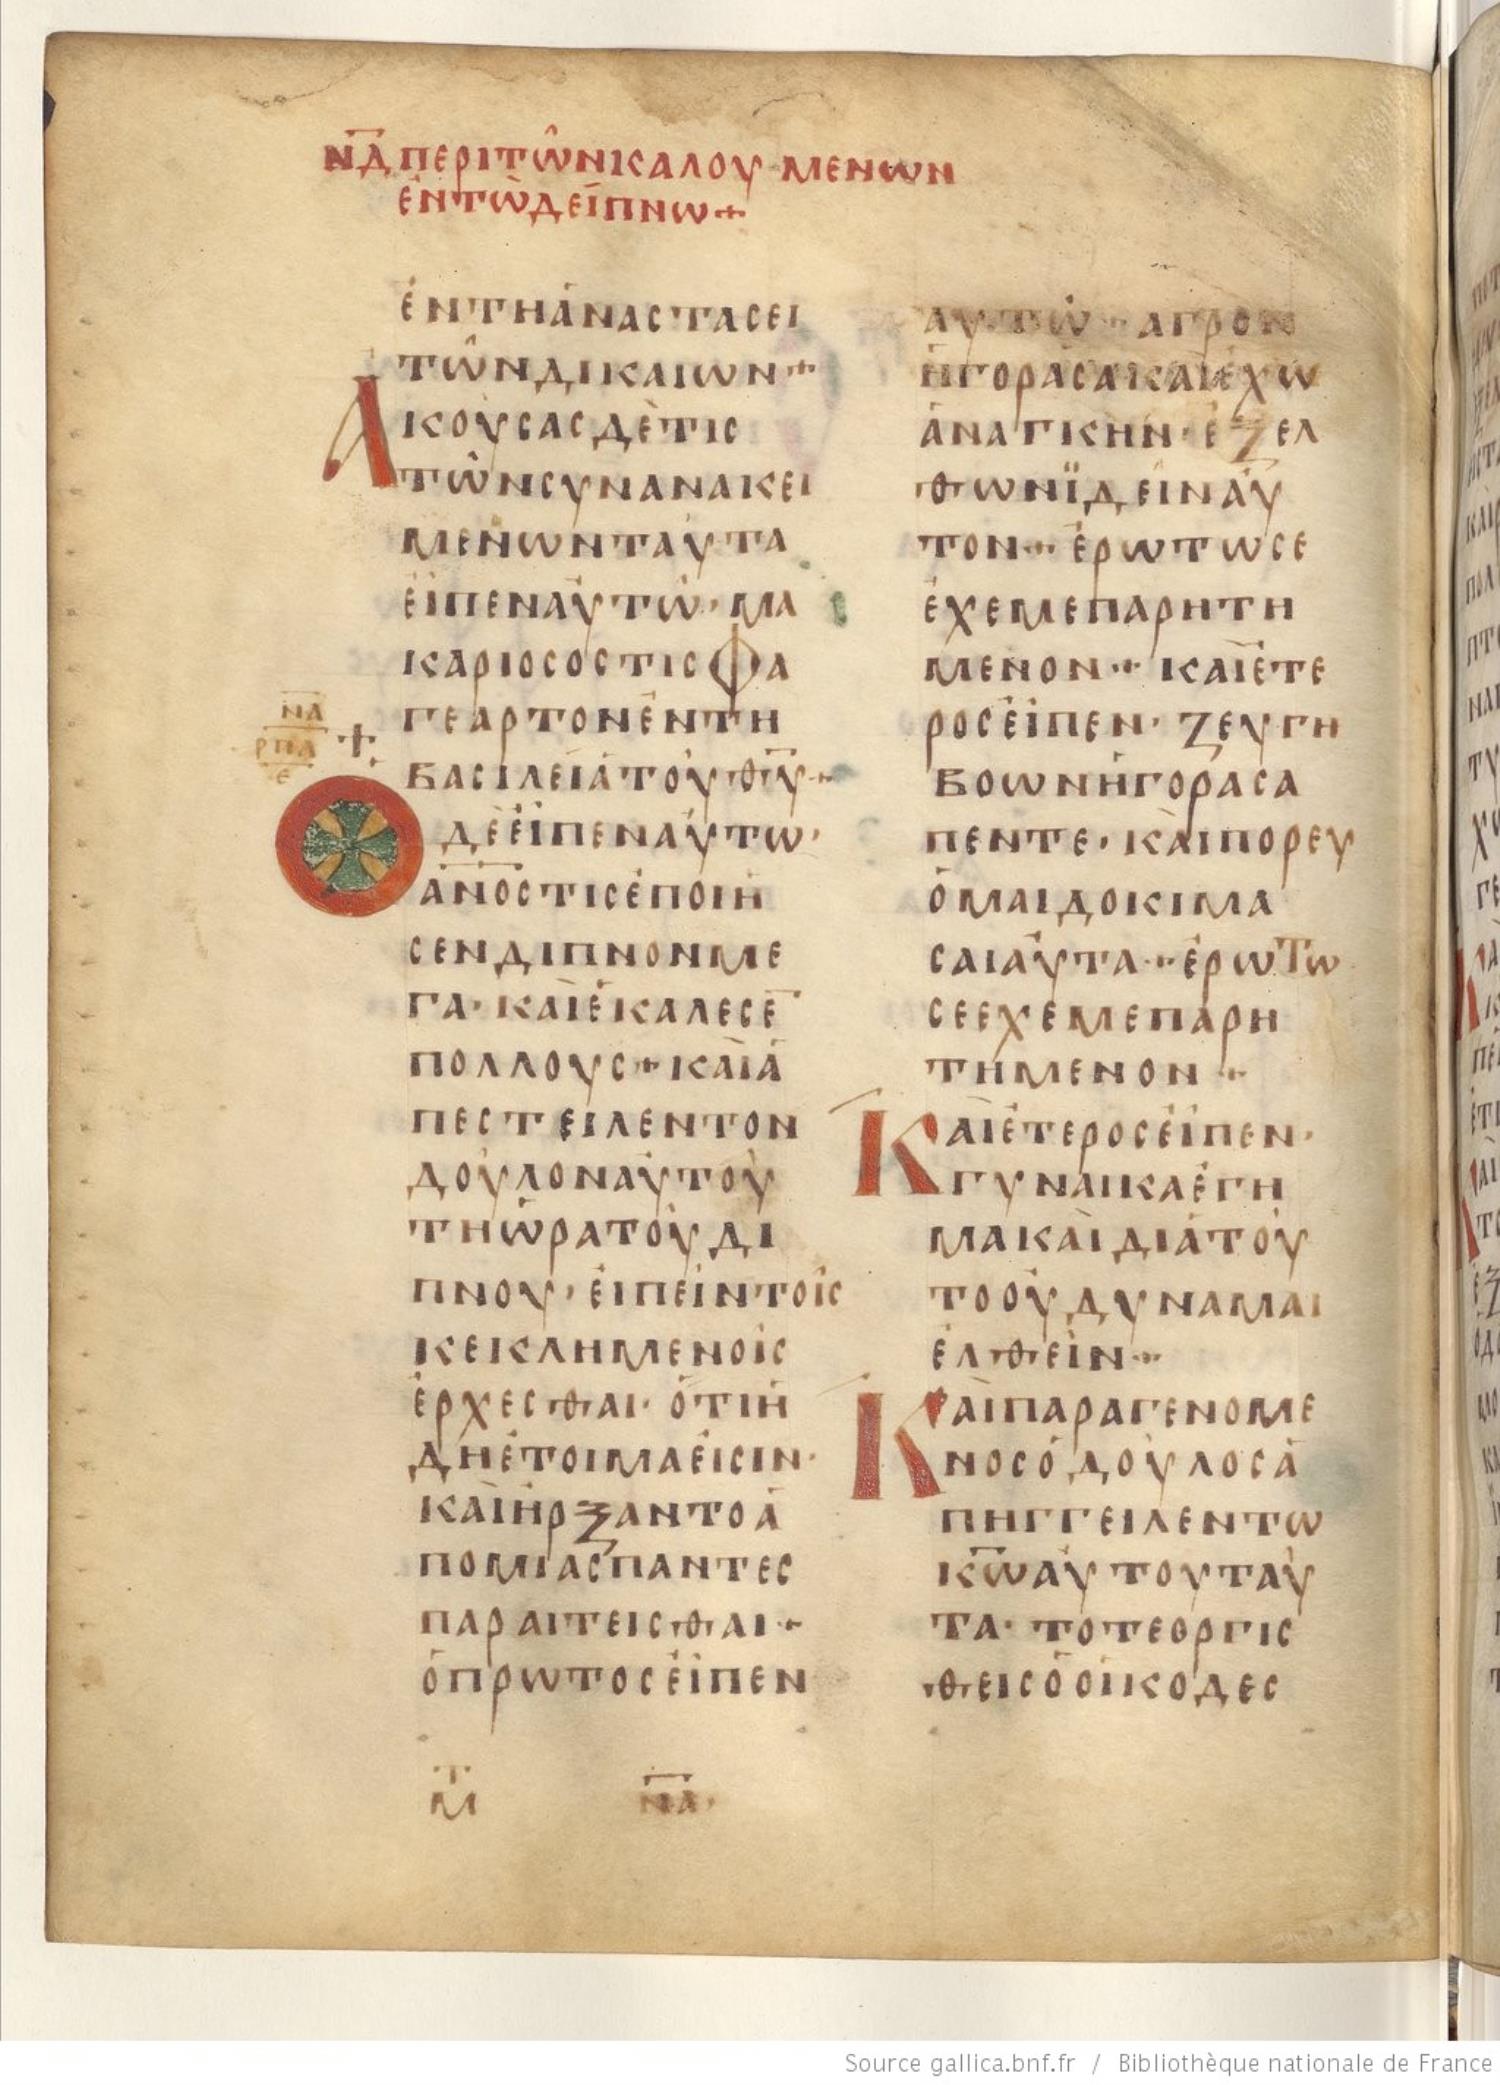 ΝΔ ΠΕΡΙ ΤΩΝ ΚΑΛΟΥΜΕΝΩΝ
ΕΝ ΤΩ ΔΕΙΠΝΩ +
ΕΝ ΤΗ ΑΝΑΣΤΑΣΕΙ
ΤΩΝ ΔΙΚΑΙΩΝ +
ΑΚΟΥΣΑΣ ΔΕ ΤΙΣ
ΤΩΝ ΣΥΝΑΝΑΚΕΙ
ΜΕΝΩΝ ΤΑΥΤΑ
ΕΙΠΕΝ ΑΥΤΩ · ΜΑ
ΚΑΡΙΟΣ ΟΣΤΙΣ ΦΑ
ΓΕ ΑΡΤΟΝ ΕΝ ΤΗ
ΝΔ
ΡΠΑ
Ε
ΒΑΣΙΛΕΙΑ ΤΟΥ ΘΥ +
Ο ΔΕ ΕΙΠΕΝ ΑΥΤΩ ·
ΑΝΟΣ ΤΙΣ ΕΠΟΙΗ
ΣΕΝ ΔΙΠΝΟΝ ΜΕ
ΓΑ · ΚΑΙ ΕΚΑΛΕΣΕ̅
ΠΟΛΛΟΥΣ + ΚΑΙ Α
ΠΕΣΤΕΙΛΕΝ ΤΟΝ
ΔΟΥΛΟΝ ΑΥΤΟΥ
ΤΗ ΩΡΑ ΤΟΥ ΔΙ
ΠΝΟΥ · ΕΙΠΕΙΝ ΤΟΙΣ
ΚΕΚΛΗΜΕΝΟΙΣ
ΕΡΧΕΣΘΑΙ · ΟΤΙ Η
ΔΗ ΕΤΟΙΜΑ ΕΙΣΙΝ ·
ΚΑΙ ΗΡΞΑΝΤΟ Α
ΠΟ ΜΙΑΣ ΠΑΝΤΕΣ
ΠΑΡΑΙΤΕΙΣΘΑΙ +
Ο ΠΡΩΤΟΣ ΕΙΠΕΝ
ΑΥΤΩ + ΑΓΡΟΝ
ΗΓΟΡΑΣΑ ΚΑΙ ΕΧΩ
ΑΝΑΓΚΗΝ · ΕΞΕΛ
ΘΩΝ ΙΔΕΙΝ ΑΥ
ΤΟΝ + ΕΡΩΤΩ ΣΕ
ΕΧΕ ΜΕ ΠΑΡΗΤΗ
ΜΕΝΟΝ + ΚΑΙ ΕΤΕ
ΡΟΣ ΕΙΠΕΝ · ΖΕΥΓΗ
ΒΟΩΝ ΗΓΟΡΑΣΑ
ΠΕΝΤΕ · ΚΑΙ ΠΟΡΕΥ
ΟΜΑΙ ΔΟΚΙΜΑ
ΣΑΙ ΑΥΤΑ + ΕΡΩΤΩ
ΣΕ ΕΧΕ ΜΕ ΠΑΡΗ
ΤΗΜΕΝΟΝ +
ΚΑΙ ΕΤΕΡΟΣ ΕΙΠΕΝ ·
ΓΥΝΑΙΚΑ ΕΓΗ
ΜΑ ΚΑΙ ΔΙΑ ΤΟΥ
ΤΟ ΟΥ ΔΥΝΑΜΑΙ
ΕΛΘΕΙΝ +
ΚΑΙ ΠΑΡΑΓΕΝΟΜΕ
ΝΟΣ Ο ΔΟΥΛΟΣ Α
ΠΗΓΓΕΙΛΕΝ ΤΩ
ΚΩ ΑΥΤΟΥ ΤΑΥ
ΤΑ · ΤΟΤΕ ΟΡΓΙΣ
ΘΕΙΣ Ο ΟΙΚΟΔΕΣ
ΝΔ ·
Source gallica.bnf.fr / Bibliothèque nationale de France